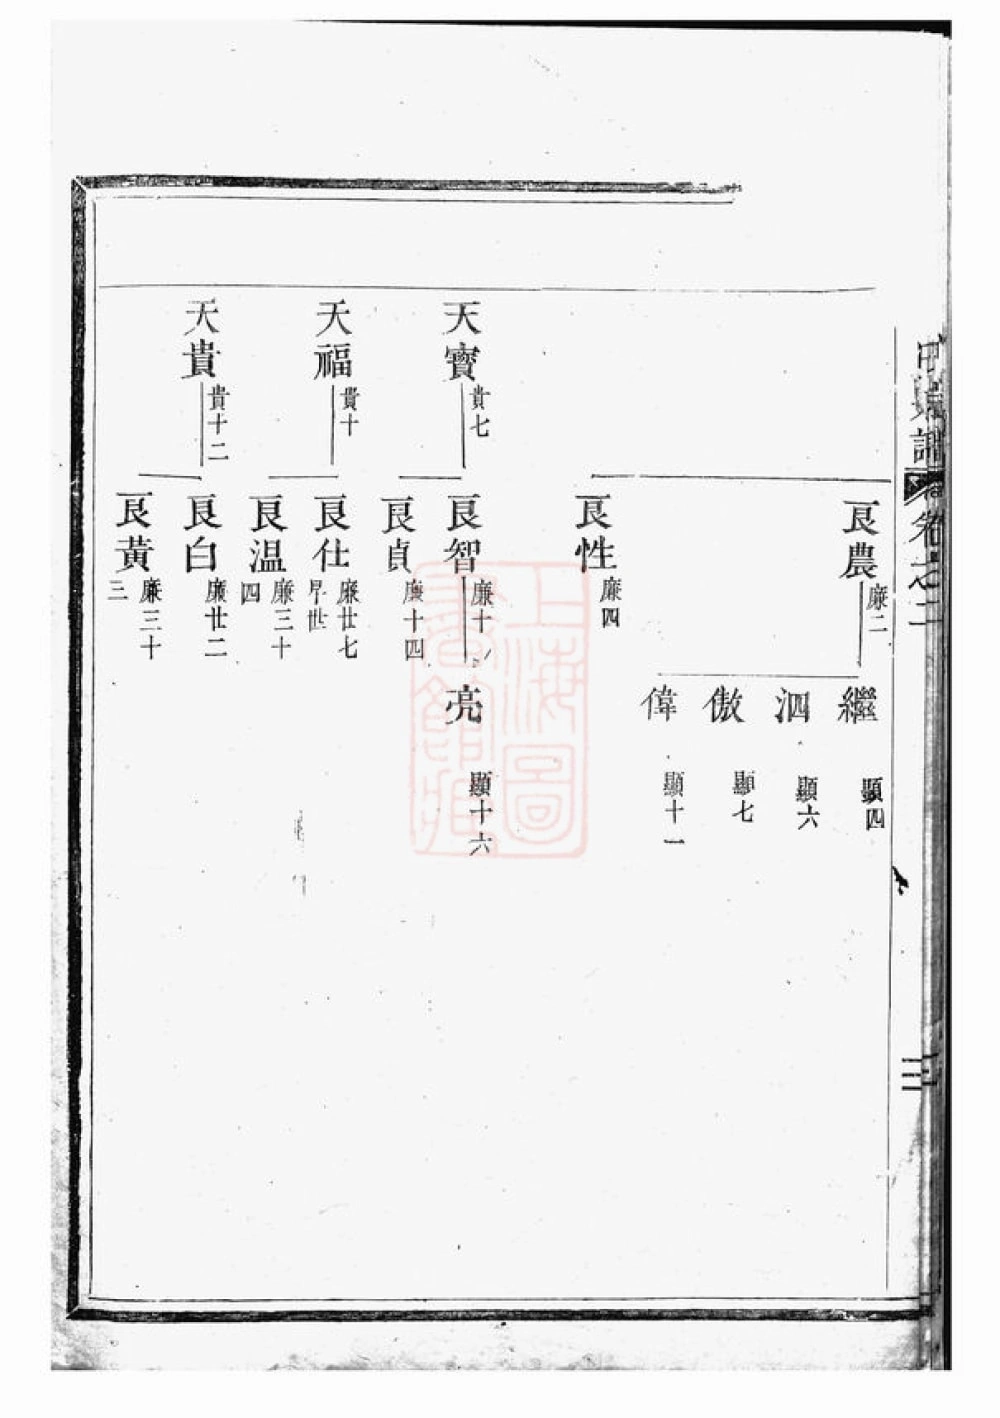 卷之二
三
良農 廉二
繼 顯四
泗 顯六
傲 顯七
偉 顯十一
良性 廉四
天寶 貴七
良智 廉十
亮 顯十六
良貞 廉十四
天福 貴十
良仕 廉廿七
早世
良温 廉三十
四
天貴 貴十二
良白 廉廿二
良黃 廉三十
三
上海圖
書館藏